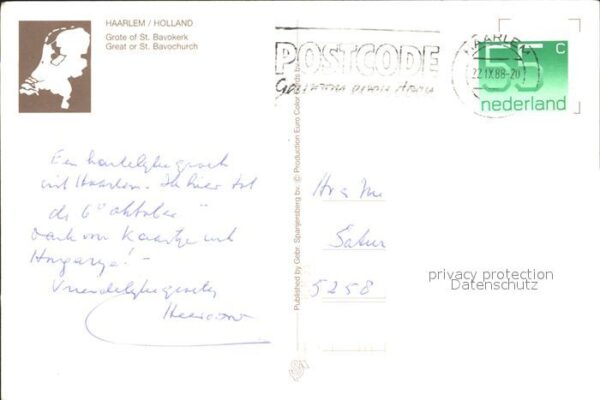 HAARLEM / HOLLAND
Grote of St. Bavokerk
Great or St. Bavochurch
POSTCODE
HAARLEM
22.IX.88-20
55 C
nederland
Published by Gebr. Spanjersberg bv. © Production Euro Color
Een hartelijke groet
uit Haarlem. Ik hier tot
de 6e oktober
Dank voor kaartje uit
Hongarije! -
Vriendelijke groeten
5258
privacy protection
Datenschutz